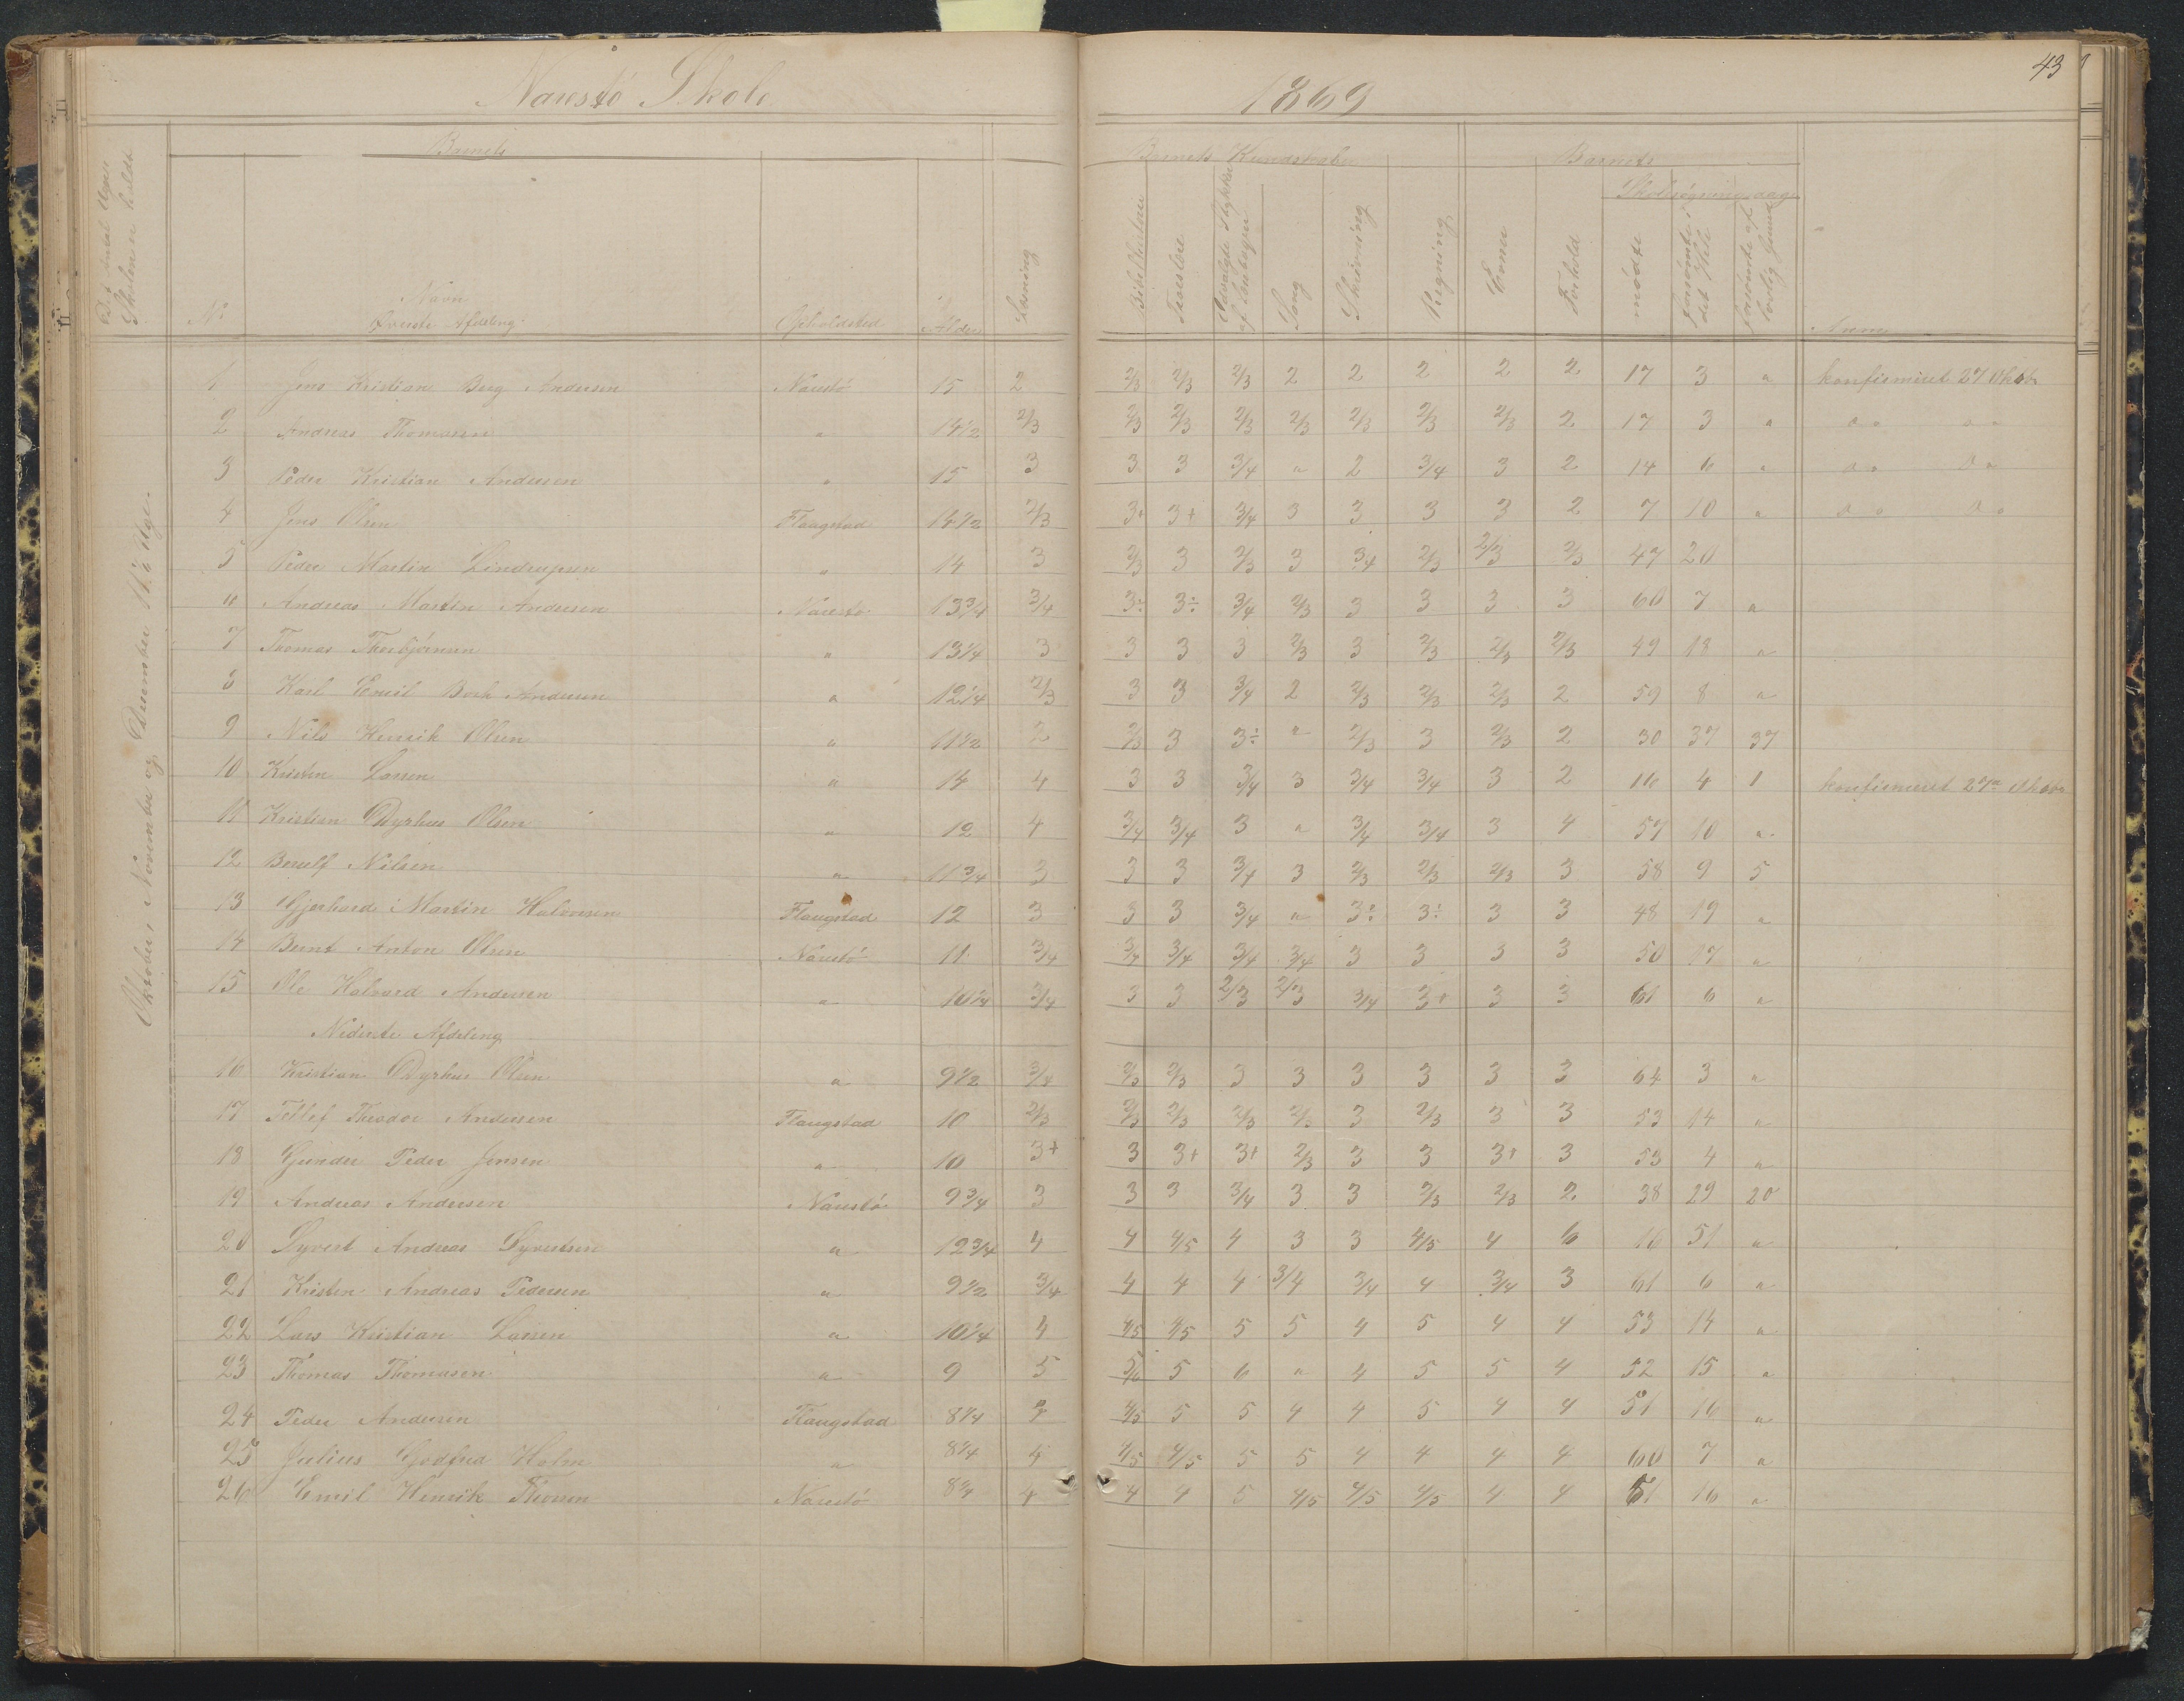 Narestø Skole 1869
43
Barnets
Barnets Kundskaber
Barnets
Skolesøgningsdage
Det Antal Uger Skolen er holdt
No
Navn
Øverste Afdeling
Opholdsted
Alder
Læsning
Bibelhistorie
Troeslære
Udvalgte Stykker af Læsebogen
Sang
Skrivning
Regning
Evner
Forhold
mødte
forsømte i det Hele
forsømte af lovlig Grund
Anm
Oktober, November og December 11½ Uge.
1 Jens Kristian Berg Andersen Narestø 15 2 2/3 2/3 2/3 2 2 2 2 2 17 3 " konfirmeret 27 Oktob
2 Andreas Thomasen " 14½ 2/3 2/3 2/3 2/3 2/3 2/3 2/3 2/3 2 17 3 " Do Do
3 Peder Kristian Andersen " 15 3 3 3 3/4 " 2 3/4 3 2 14 6 " Do Do
4 Jens Olsen Flaugstad 14½ 2/3 3+ 3+ 3/4 3 3 3 3 2 7 10 " Do Do
5 Peder Martin Lindrupsen " 14 3 2/3 3 2/3 3 3/4 2/3 2/3 2/3 47 20
6 Andreas Martin Andersen Narestø 13¾ 3/4 3÷ 3÷ 3/4 2/3 3 3 3 3 60 7 "
7 Thomas Thorbjørnsen " 13¼ 3 3 3 3 2/3 3 2/3 2/3 2/3 49 18 "
8 Karl Emil Bork Andersen " 12¼ 2/3 3 3 3/4 2 2/3 2/3 2/3 2 59 8 "
9 Nils Henrik Olsen " 11½ 2 2/3 3 3÷ " 2/3 3 2/3 2 30 37 37
10 Kristen Larsen " 14 4 3 3 3/4 3 3/4 3/4 3 2 16 4 1 konfirmeret 27de Oktobr
11 Kristian Dyrhus Olsen " 12 4 3/4 3/4 3 " 3/4 3/4 3 4 57 10 "
12 Berulf Nilsen " 11¾ 3 3 3 3/4 3 2/3 2/3 2/3 3 58 9 5
13 Gjerhard Martin Halvorsen Flaugstad 12 3 3 3 3/4 " 3÷ 3÷ 3 3 48 19 "
14 Bernt Anton Olsen Narestø 11 3/4 3/4 3/4 3/4 3/4 3 3 3 3 50 17 "
15 Ole Halvord Andersen " 10¼ 3/4 3 3 2/3 2/3 3/4 3+ 3 3 61 6 "
Nederste Afdeling
16 Kristian Dyrhus Olsen " 9½ 3/4 2/3 2/3 3 3 3 3 3 3 64 3 "
17 Tellef Theodor Andersen Flaugstad 10 2/3 2/3 2/3 2/3 2/3 3 2/3 3 3 53 14 "
18 Gunder Peder Jensen " 10 3+ 3 3+ 3+ 2/3 3 3 3+ 3 53 4 "
19 Andreas Andersen Narestø 9¾ 3 3 3 3/4 3 3 2/3 2/3 2 38 29 20
20 Syvert Andreas Syvertsen " 12¾ 4 4 4/5 4 3 3 4/5 4 6 16 51 "
21 Kristen Andreas Pedersen " 9½ 3/4 4 4 4 3/4 3/4 4 3/4 3 61 6 "
22 Lars Kristian Larsen " 10¼ 4 4/5 4/5 5 5 4 5 4 4 53 14 "
23 Thomas Thomasen " 9 5 5/6 5 6 " 4 5 5 4 52 15 "
24 Peder Andersen Flaugstad 8¼ 4 4/5 5 5 4 4 5 4 4 51 16 "
25 Julius Godfred Holm " 8¼ 4 4/5 4/5 5 5 4 4 4 4 60 7 "
26 Emil Henrik Thorsen Narestø 8¼ 4 4 4 5 4/5 4/5 4/5 4 4 51 16 "